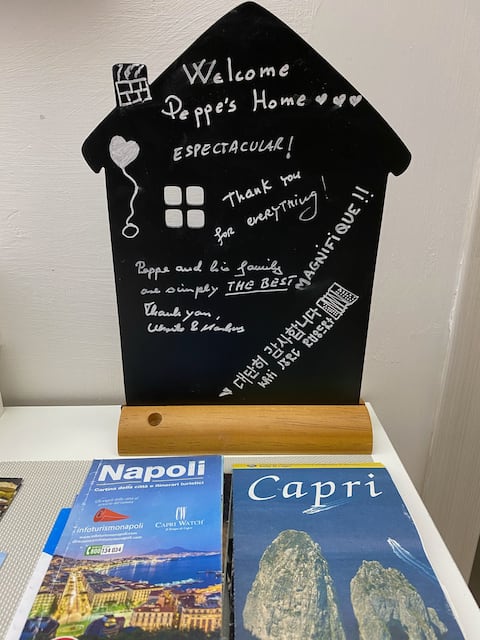 Welcome
Peppe's Home
ESPECTACULAR!
Thank you
for everything!
MAGNIFIQUE !!
Peppe and his family
are simply THE BEST
Thank you,
대단히 감사합니다
Napoli
Cartina della città e itinerari turistici
infoturismonapoli
www.infoturismonapoli.com
CW
CAPRI WATCH
Capri